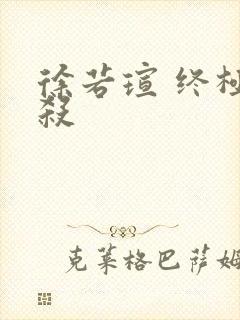 徐若瑄 终极
殺
克莱格巴萨姆